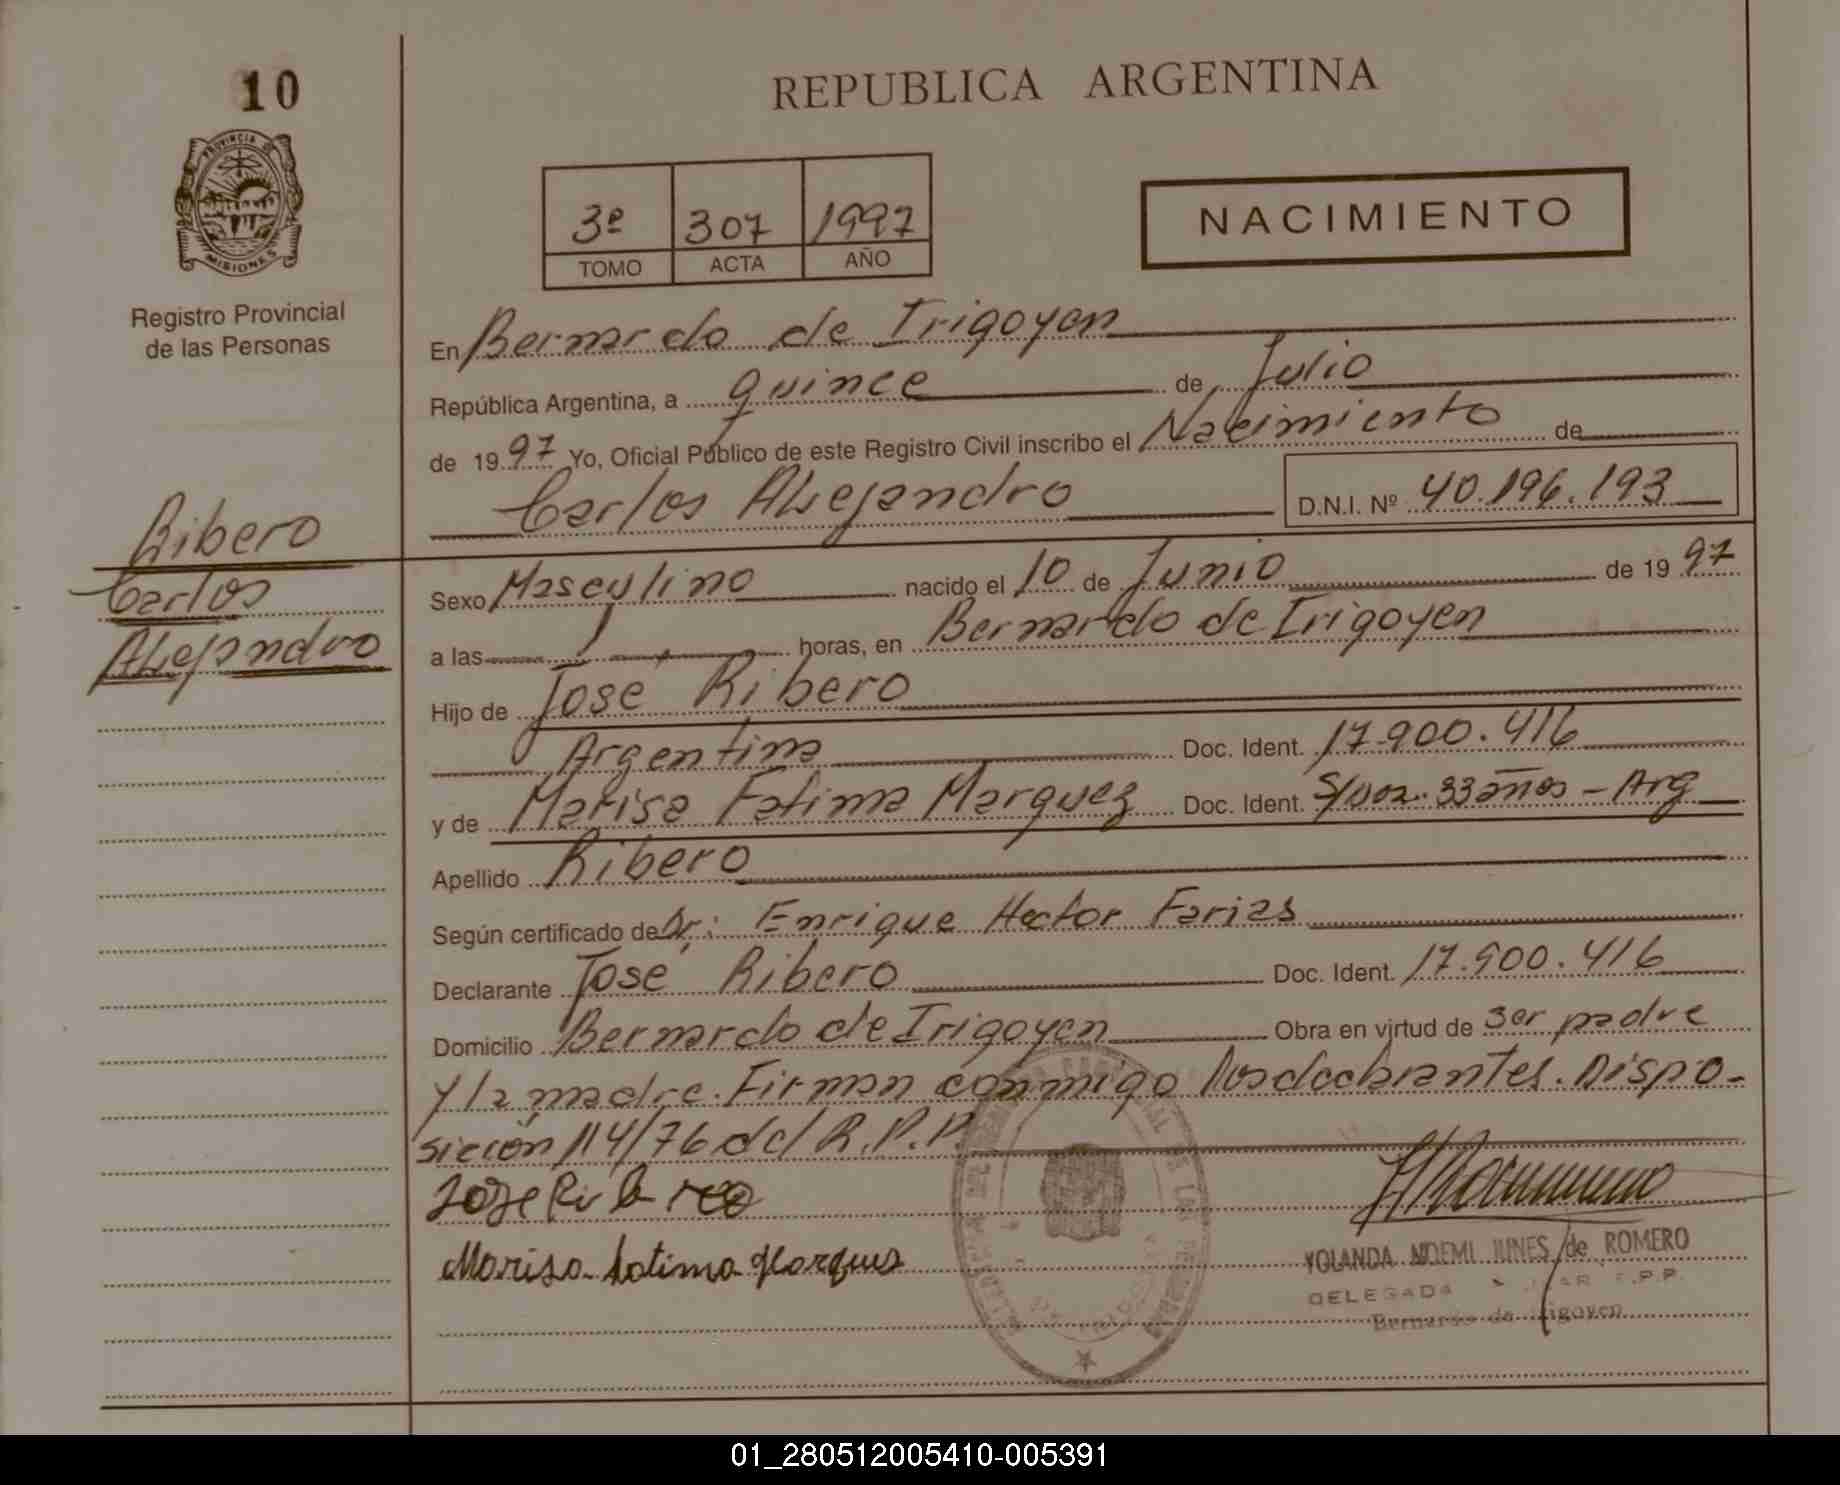 10
REPUBLICA ARGENTINA
PROVINCIA DE
MISIONES
Registro Provincial
de las Personas
3º 307 1997
TOMO ACTA AÑO
NACIMIENTO
En Bernardo de Irigoyen
República Argentina, a quince de Julio
de 1997 Yo, Oficial Público de este Registro Civil inscribo el Nacimiento de
Carlos Alejandro D.N.I. Nº 40.196.193
Ribero
Carlos
Alejandro
Sexo Masculino nacido el 10 de Junio de 1997
a las horas, en Bernardo de Irigoyen
Hijo de José Ribero
Argentina Doc. Ident. 17.900.416
y de Marisa Fatima Marquez Doc. Ident. S/Doz. 33 años - Arg
Apellido Ribero
Según certificado de Dr: Enrique Hector Farias
Declarante José Ribero Doc. Ident. 17.900.416
Domicilio Bernardo de Irigoyen Obra en virtud de ser padre
y la madre. Firman conmigo los declarantes. Dispo-
sición 114/76 del R.P.P.
Jose Ribero
Marisa Fatima Marques
YOLANDA NOEMI de ROMERO
DELEGADA R.P.P.
Bernardo de Irigoyen
01_280512005410-005391